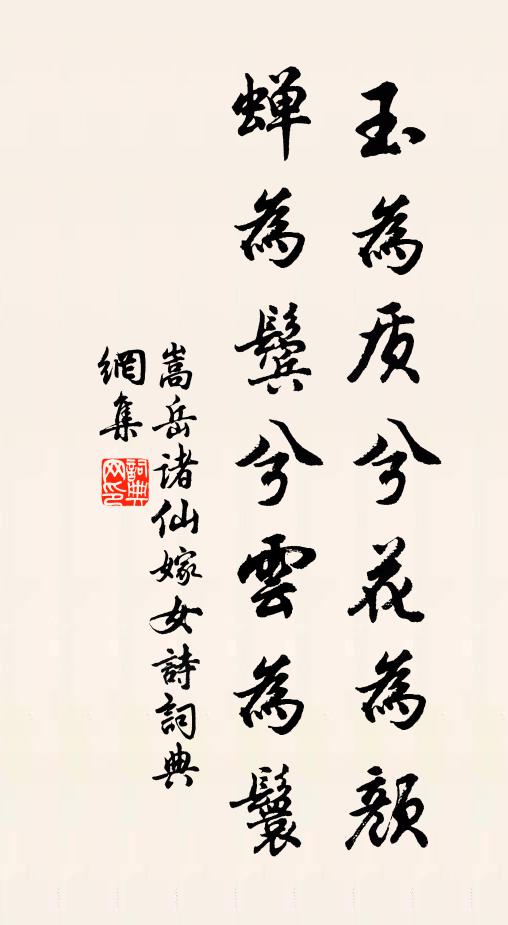 玉為质兮花為顔
蝉為鬓兮雲為鬟
嵩岳諸仙嫁女詩詞典
網集
詞典
网印